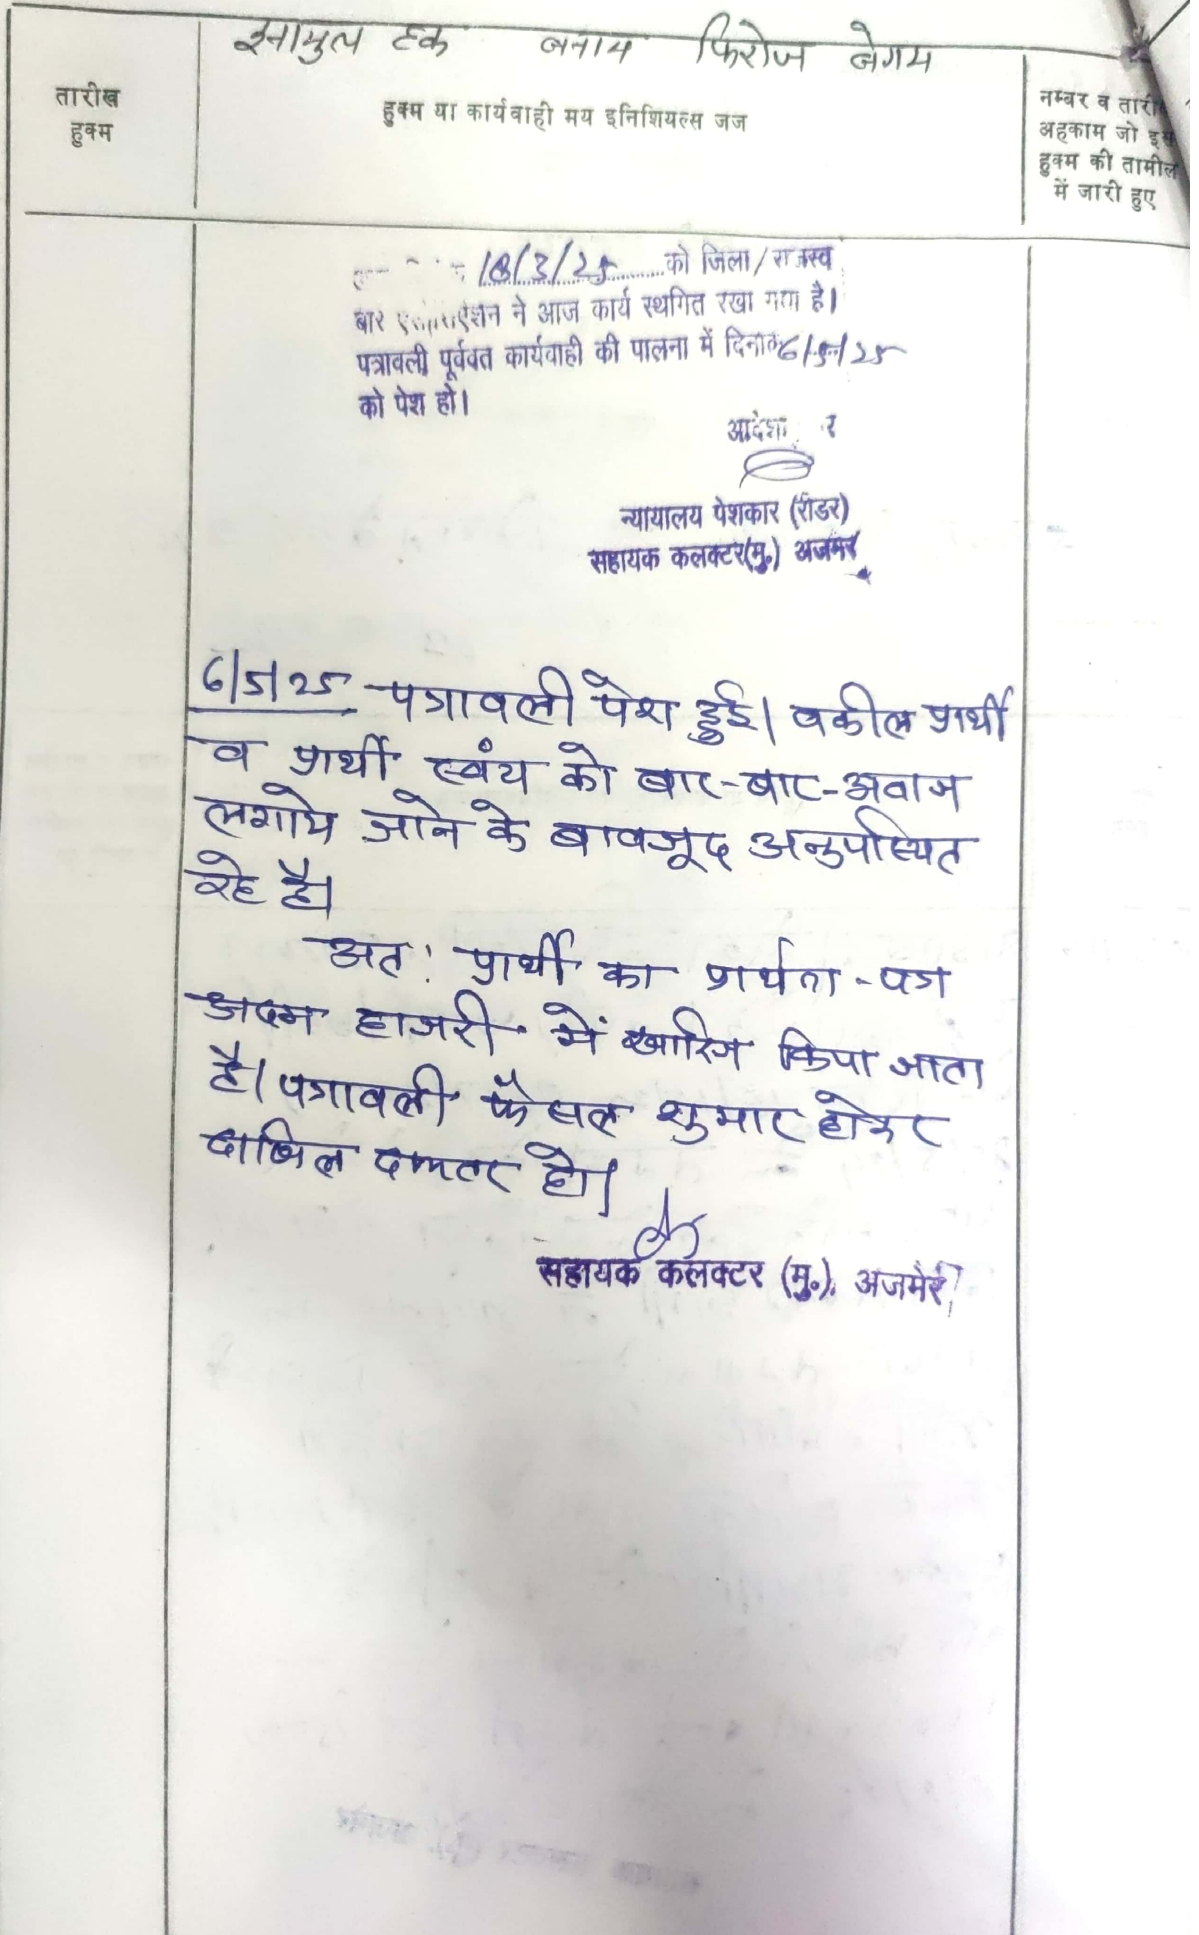 इनामुल हक बनाम फिरोज बेगम
तारीख
हुक्म
हुक्म या कार्यवाही मय इनिशियल्स जज
नम्बर व तारीख
अहकाम जो इस
हुक्म की तामील
में जारी हुए
18/3/25 को जिला/राजस्व
बार एसोसिएशन ने आज कार्य स्थगित रखा गया है।
पत्रावली पूर्ववत कार्यवाही की पालना में दिनांक 6/5/25
को पेश हो।
न्यायालय पेशकार (रीडर)
सहायक कलक्टर(मु०) अजमेर
6/5/25 पत्रावली पेश हुई। वकील प्रार्थी
व प्रार्थी स्वंय को बार-बार-अवाज
लगाये जाने के बावजूद अनुपस्थित
रहे है।
अतः प्रार्थी का प्रार्थना-पत्र
अदम हाजरी में खारिज किया जाता
है। पत्रावली फैसल शुमार होकर
दाखिल दफ्तर हो।
सहायक कलक्टर (मु०), अजमेर